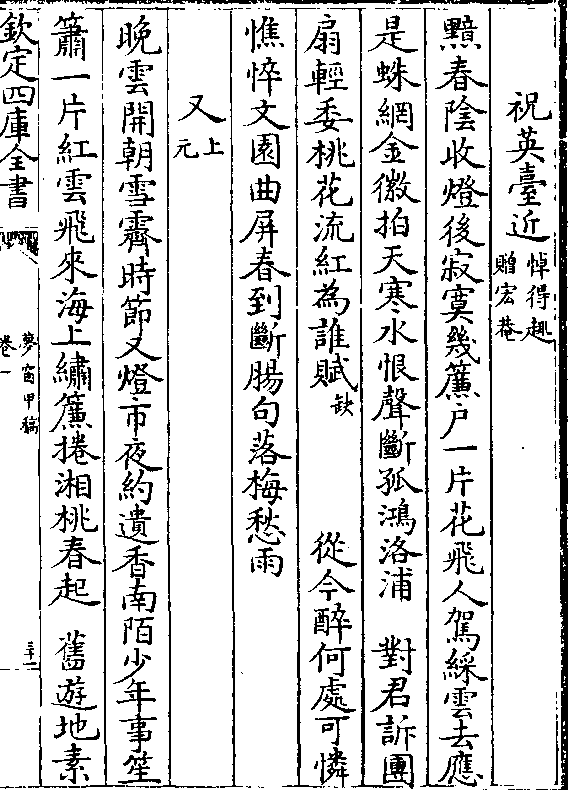 祝英臺近悼得趣
贈宏菴
黯春陰收燈後寂寞幾簾户一片花飛人駕綵雲去應
是蛛網金徽拍天寒水恨聲斷孤鴻洛浦　對君訴團
扇輕委桃花流紅為誰賦缺　從今醉何處可憐
憔悴文園曲屏春到斷腸句落梅愁雨
又上
元
晚雲開朝雪霽時節又燈市夜約遺香南陌少年事笙
簫一片紅雲飛來海上繡簾捲緗桃春起　舊遊地素
欽定四庫全書
夢窗甲稿
卷一
三十一